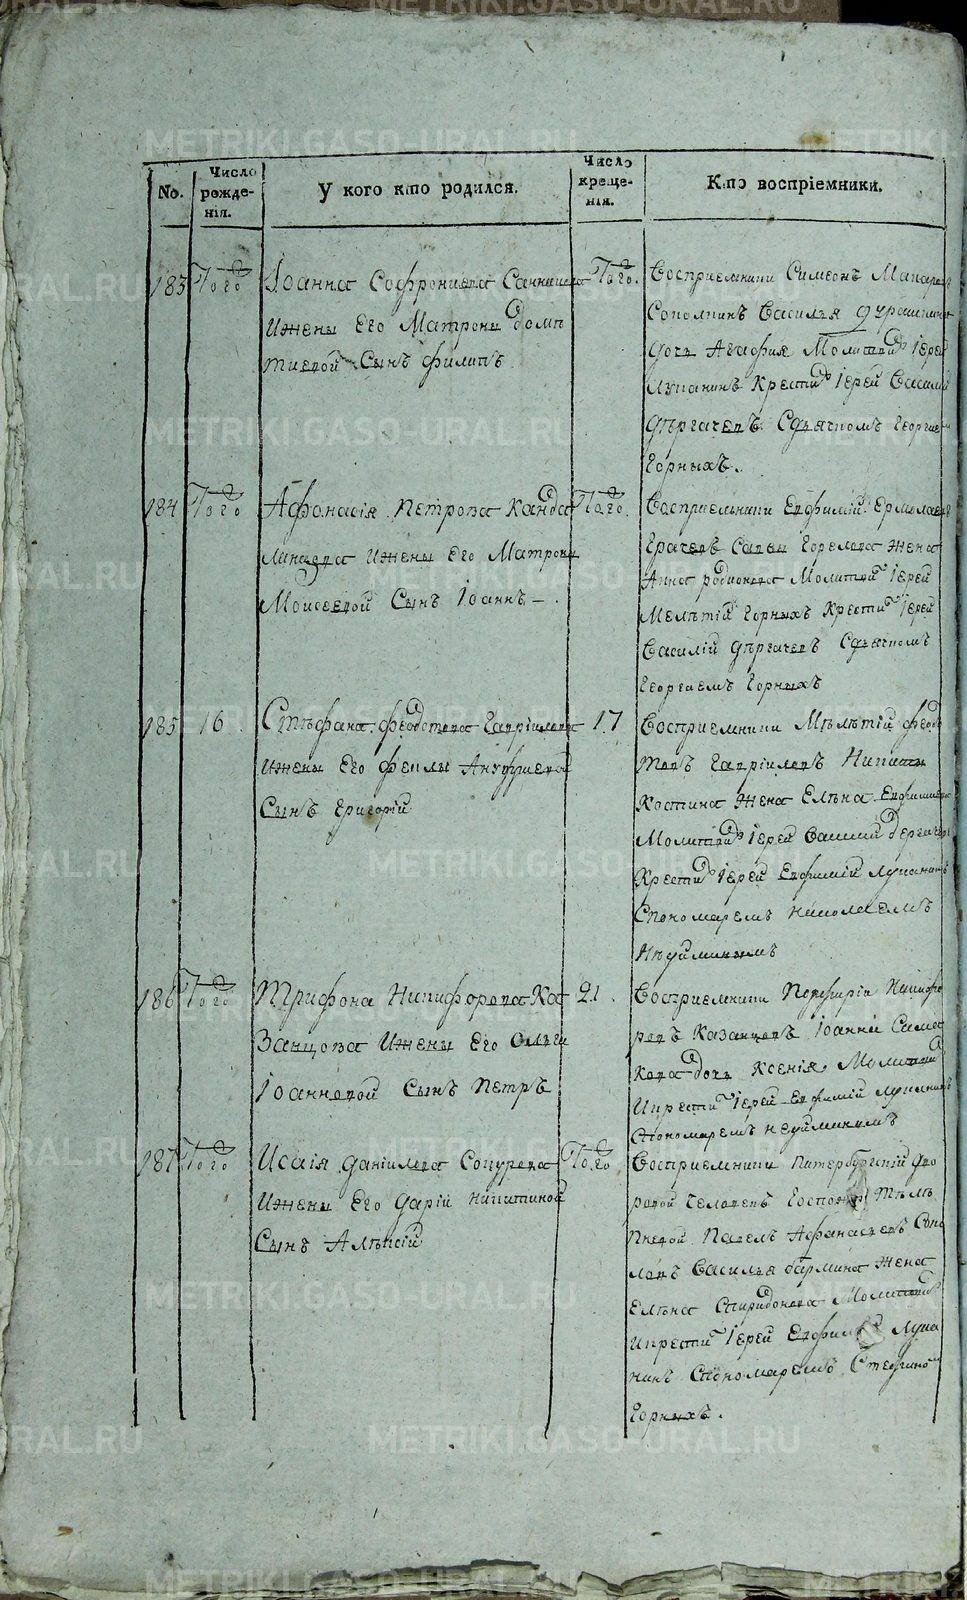 METRIKI.GASO-URAL.RU
No.
Число рожденія.
У кого кто родился.
Число крещенія.
Кто воспріемники.
183 Того Іоанна Софрониева Того
Ижены Его Матроны домн
тиевой Сынъ филипъ
Восприемники Симеонъ
Василья
дочь Агафия Молитвой Іерей
Лупанинъ Крестил Іерей Василий
дѣргачевъ Сдьячкомъ Георгие
Горныхъ.
184 Того Афонасія Петрова Канда Того.
линцева Ижены Его Матроны
Моисеевой Сынъ Іоаннъ
Восприемники Евфимий Ермолаевъ
Грачевъ Савы Горелова жена
Анна родионова Молитвой Іерей
Мелѣтій Горныхъ Крестил Іерей
Василій дѣргачевъ Сдьячкомъ
Георгиемъ Горныхъ
185 16 Стѣфана феодотова Гаврилова 17
Ижены Его феклы Ануфриевой
Сынъ Григорій
Восприемники Мѣлѣтій федо
товъ Гавриловъ Никиты
Костина жена Елѣна Евфимиева
Молитвой Іерей Василий дергачевъ
Крестил Іерей Евфимій лупанинъ
Спономаремъ Николаемъ
Нѣуйминымъ
186 Того Трифона Никифорова Ка 21.
Занцова Ижены Его Ольги
Іоанновой Сынъ Петръ
Восприемники Порфирій Никифо
ровъ Казанцовъ Іоанна Сама
кова дочь Ксенія Молитвой
Икрестил Іерей Евфимий лупанинъ
Спономаремъ неуйминымъ
187 Того Исаія даніилова Сокурова Того
Ижены Его дарій Никитиной
Сынъ Алѣксій
Восприемники Питербургский дво
ровой Человекъ Госпожи
Павелъ Афанасьевъ Соко
ловъ Василья бармина жена
Елѣна Спиридонова Молитвой
Икрестил Іерей Евфимий Лупа
нинъ Спономаремъ Стефано
Горныхъ.